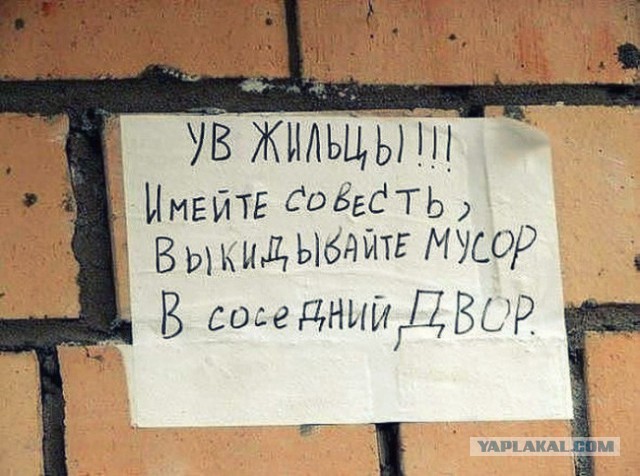 УВ ЖИЛЬЦЫ!!!
ИМЕЙТЕ СОВЕСТЬ,
ВЫКИДЫВАЙТЕ МУСОР
В соседний ДВОР.
YAPLAKAL.COM